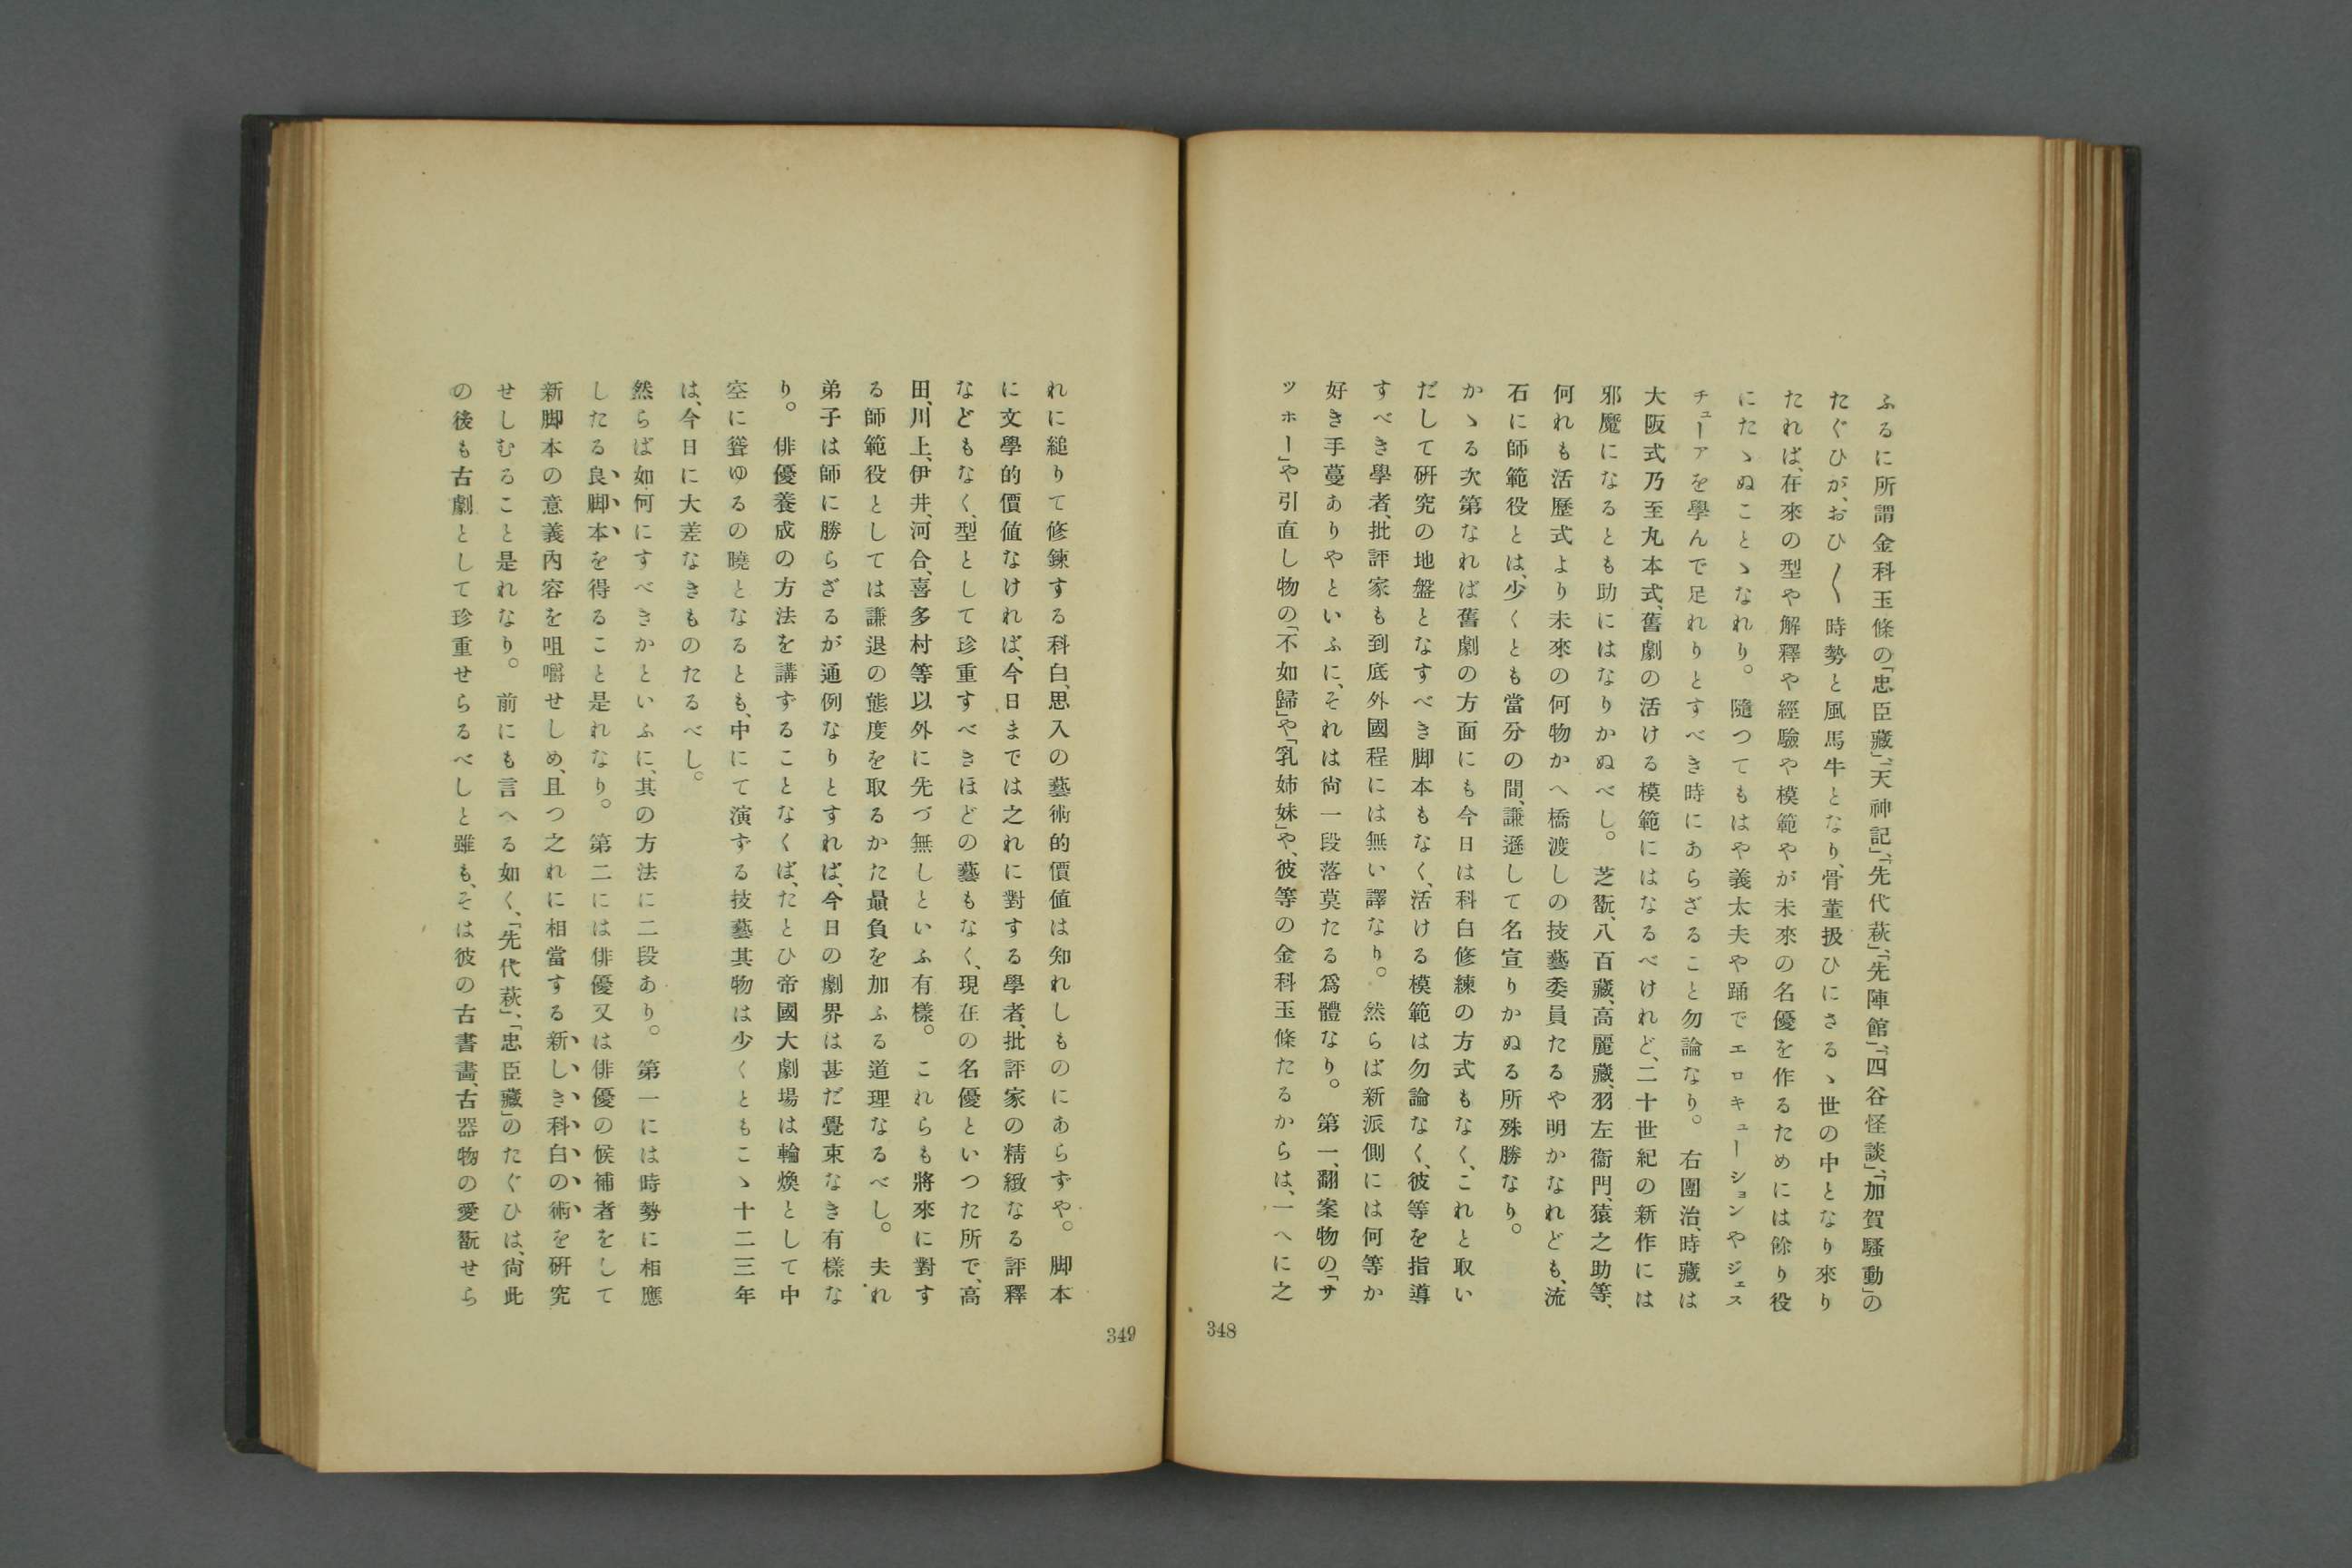 ふるに所謂金科玉條の「忠臣藏」、「天神記」、「先代萩」、「先陣館」、「四谷怪談」、「加賀騷動」の
たぐひが、おひ〳〵時勢と風馬牛となり、骨董扱ひにさるゝ世の中となり來り
たれば、在來の型や解釋や經驗や模範やが未來の名優を作るためには餘り役
にたゝぬことゝなれり。隨つてもはや義太夫や踊でエロキューションやジェス
チューアを學んで足れりとすべき時にあらざること勿論なり。右團治、時藏は
大阪式乃至丸本式、舊劇の活ける模範にはなるべけれど、二十世紀の新作には
邪魔になるとも助にはなりかぬべし。芝翫、八百藏、高麗藏、羽左衞門、猿之助等、
何れも活歷式より未來の何物かへ橋渡しの技藝委員たるや明かなれども、流
石に師範役とは、少くとも當分の間、謙遜して名宣りかぬる所殊勝なり。
かゝる次第なれば舊劇の方面にも今日は科白修練の方式もなく、これと取い
だして研究の地盤となすべき脚本もなく、活ける模範は勿論なく、彼等を指導
すべき學者、批評家も到底外國程には無い譯なり。然らば新派側には何等か
好き手蔓ありやといふに、それは尙一段落莫たる爲體なり。第一、翻案物の「サ
ッホー」や引直し物の「不如歸」や「乳姉妹」や、彼等の金科玉條たるからは、一へに之
348
れに縋りて修鍊する科白、思入の藝術的價値は知れしものにあらずや。脚本
に文學的價値なければ、今日までは之れに對する學者、批評家の精緻なる評釋
などもなく、型として珍重すべきほどの藝もなく、現在の名優といつた所で、高
田、川上、伊井、河合、喜多村等以外に先づ無しといふ有樣。これらも將來に對す
る師範役としては謙退の態度を取るかた最負を加ふる道理なるべし。夫れ
弟子は師に勝らざるが通例なりとすれば、今日の劇界は甚だ覺束なき有樣な
り。俳優養成の方法を講ずることなくば、たとひ帝國大劇場は輪煥として中
空に聳ゆるの曉となるとも、中にて演ずる技藝其物は少くともこゝ十二三年
は、今日に大差なきものたるべし。
然らば如何にすべきかといふに、其の方法に二段あり。第一には時勢に相應
したる良脚本を得ること是れなり。第二には俳優又は俳優の候補者をして
新脚本の意義內容を咀嚼せしめ、且つ之れに相當する新しき科白の術を研究
せしむること是れなり。前にも言へる如く、「先代萩」、「忠臣藏」のたぐひは、尙此
の後も古劇として珍重せらるべしと雖も、そは彼の古書畵、古器物の愛翫せら
349